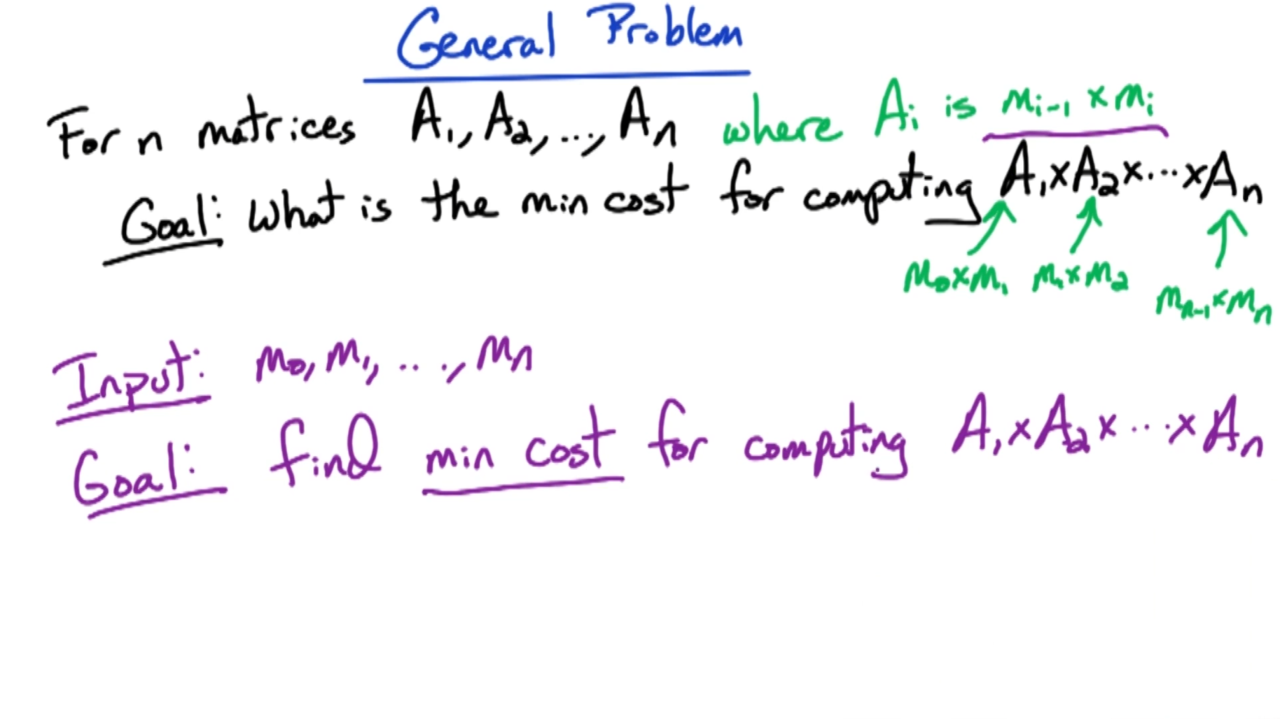 General Problem
For n matrices A₁, A₂, ..., Aₙ where Aᵢ is mᵢ₋₁ × mᵢ
Goal: What is the min cost for computing A₁×A₂×···×Aₙ
m₀×m₁ m₁×m₂ mₙ₋₁×mₙ
Input: m₀, m₁, ..., mₙ
Goal: find min cost for computing A₁×A₂×···×Aₙ